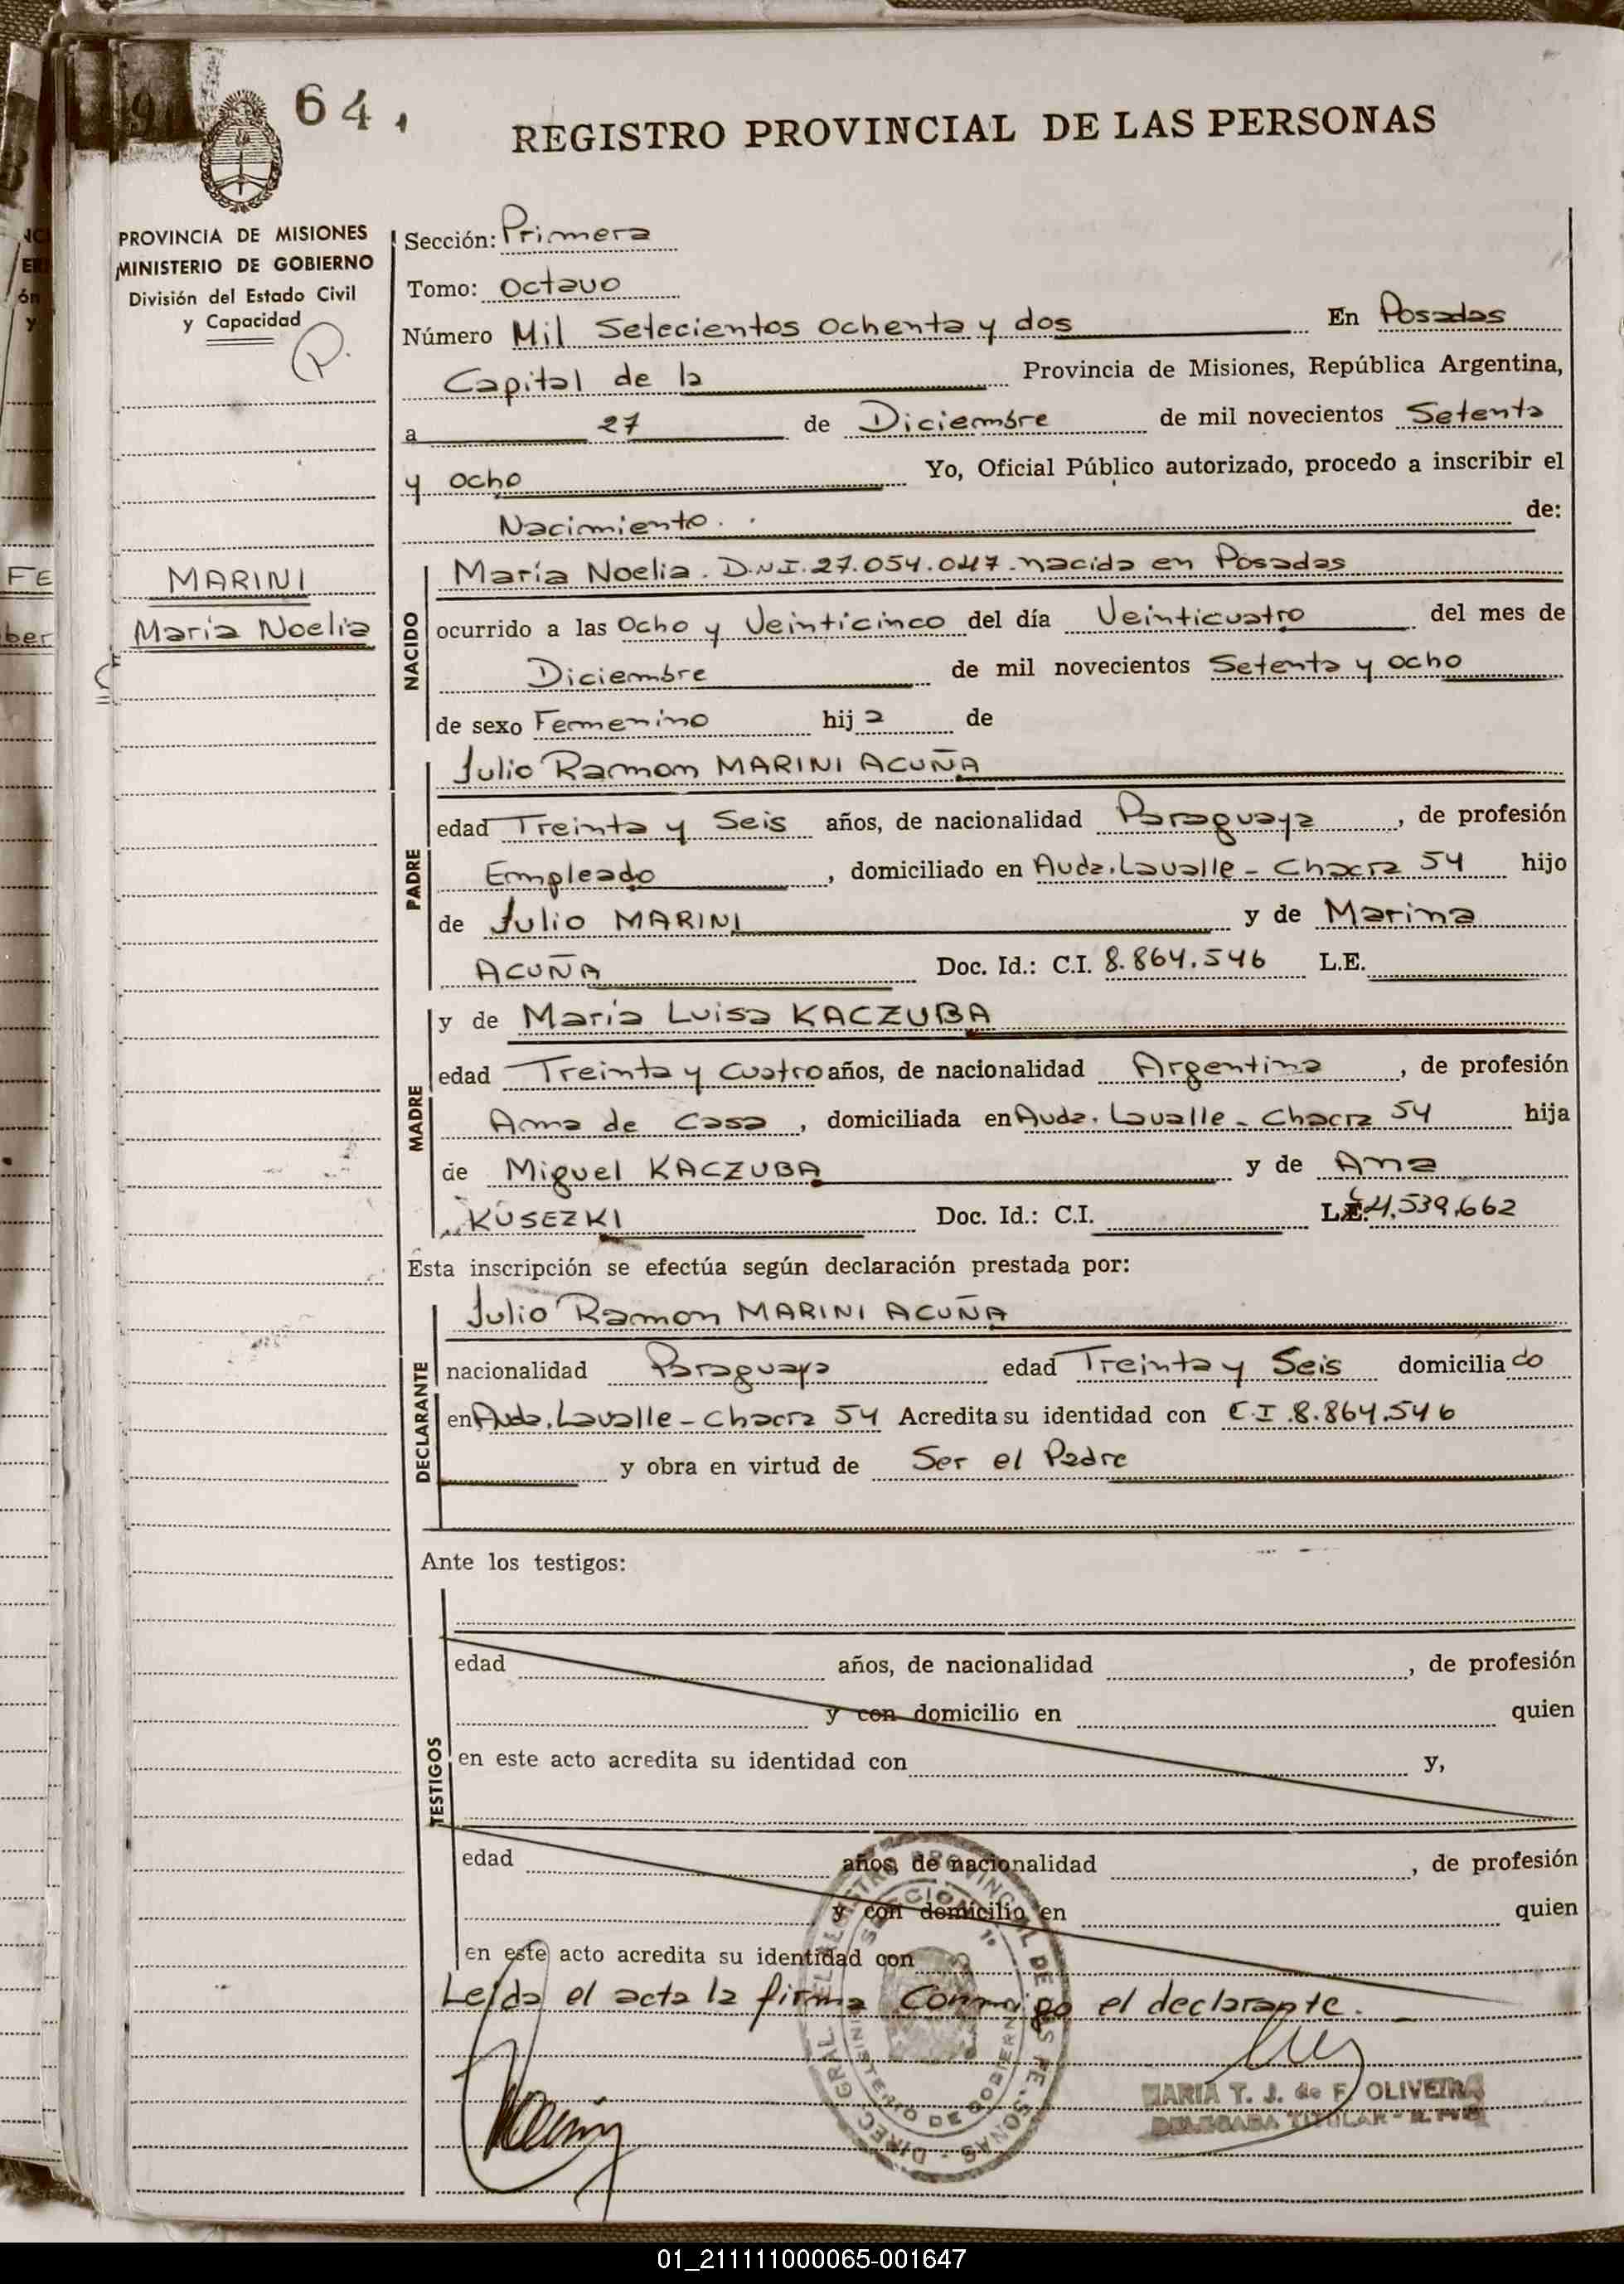 64.
REGISTRO PROVINCIAL DE LAS PERSONAS
PROVINCIA DE MISIONES
MINISTERIO DE GOBIERNO
División del Estado Civil
y Capacidad
MARINI
María Noelia
Sección: Primera
Tomo: Octavo
Número Mil Setecientos Ochenta y dos En Posadas
Capital de la Provincia de Misiones, República Argentina,
a 27 de Diciembre de mil novecientos Setenta
y ocho Yo, Oficial Público autorizado, procedo a inscribir el
Nacimiento. de:
NACIDO
María Noelia. D.N.I. 27.054.047. nacida en Posadas
ocurrido a las Ocho y Veinticinco del día Veinticuatro del mes de
Diciembre de mil novecientos Setenta y ocho
de sexo Femenino hija de
PADRE
Julio Ramon MARINI ACUÑA
edad Treinta y Seis años, de nacionalidad Paraguaya, de profesión
Empleado, domiciliado en Avda. Lavalle - Chacra 54 hijo
de Julio MARINI y de Marina
ACUÑA Doc. Id.: C.I. 8.864.546 L.E.
MADRE
y de María Luisa KACZUBA
edad Treinta y cuatro años, de nacionalidad Argentina, de profesión
Ama de Casa, domiciliada en Avda. Lavalle - Chacra 54 hija
de Miguel KACZUBA y de Ana
KUSEZKI Doc. Id.: C.I. L.C. 4.539.662
Esta inscripción se efectúa según declaración prestada por:
DECLARANTE
Julio Ramon MARINI ACUÑA
nacionalidad Paraguaya edad Treinta y Seis domiciliado
en Avda. Lavalle - Chacra 54 Acredita su identidad con C.I. 8.864.546
y obra en virtud de Ser el Padre
Ante los testigos:
TESTIGOS
edad años, de nacionalidad , de profesión
y con domicilio en quien
en este acto acredita su identidad con y,
edad años, de nacionalidad , de profesión
y con domicilio en quien
en este acto acredita su identidad con
Leída el acta la firma Conmigo el declarante.
DIREC. GRAL. DEL REGISTRO PROVINCIAL DE LAS PERSONAS
SECCION 1º
MINISTERIO DE GOBIERNO
MARIA T. J. de F. OLIVEIRA
DELEGADA TITULAR
01_211111000065-001647